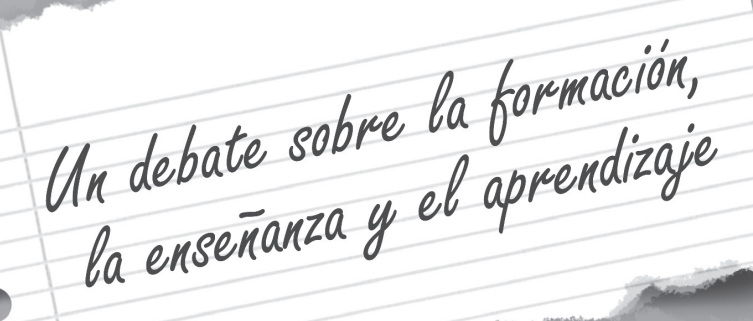 Un debate sobre la formación,
la enseñanza y el aprendizaje